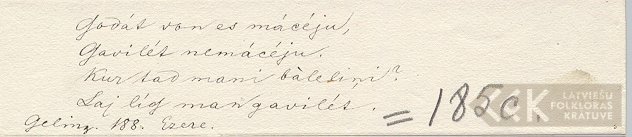 Godát von es mácéju,
Gavilét nemácéju.
Kur tad mani bàleliņi?
Laj líg man gavilét.
= 185c.
Geling. 188. Ezere.
LATVIEŠU
FOLKLORAS
KRĀTUVE